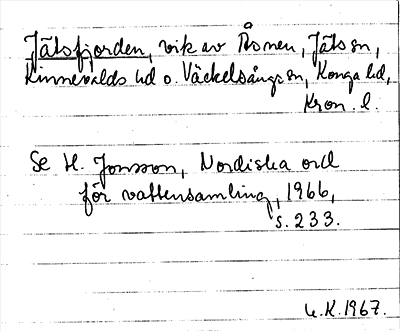 Jätsfjorden, vik av Åsnen, Jäts sn,
Kinnevalds hd o. Väckelsångs sn, Konga hd,
Kron. l.
Se H. Jonsson, Nordiska ord
för vattensamling, 1966,
s. 233.
U.K. 1967.